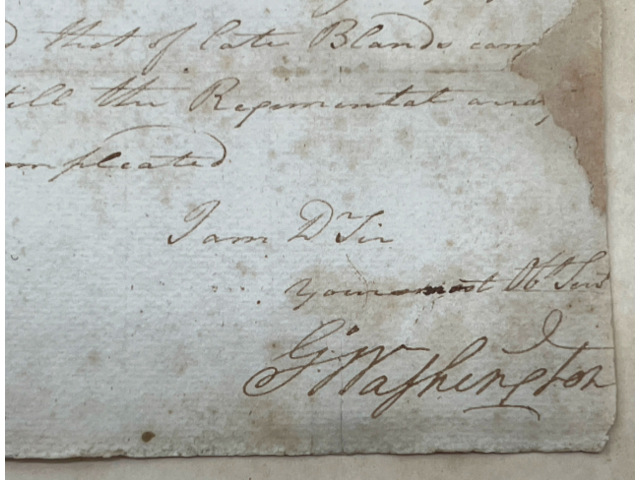 that of late Blands
till the Regimental
compleated
I am Dr Sir
your most Obt Servt
Go Washington